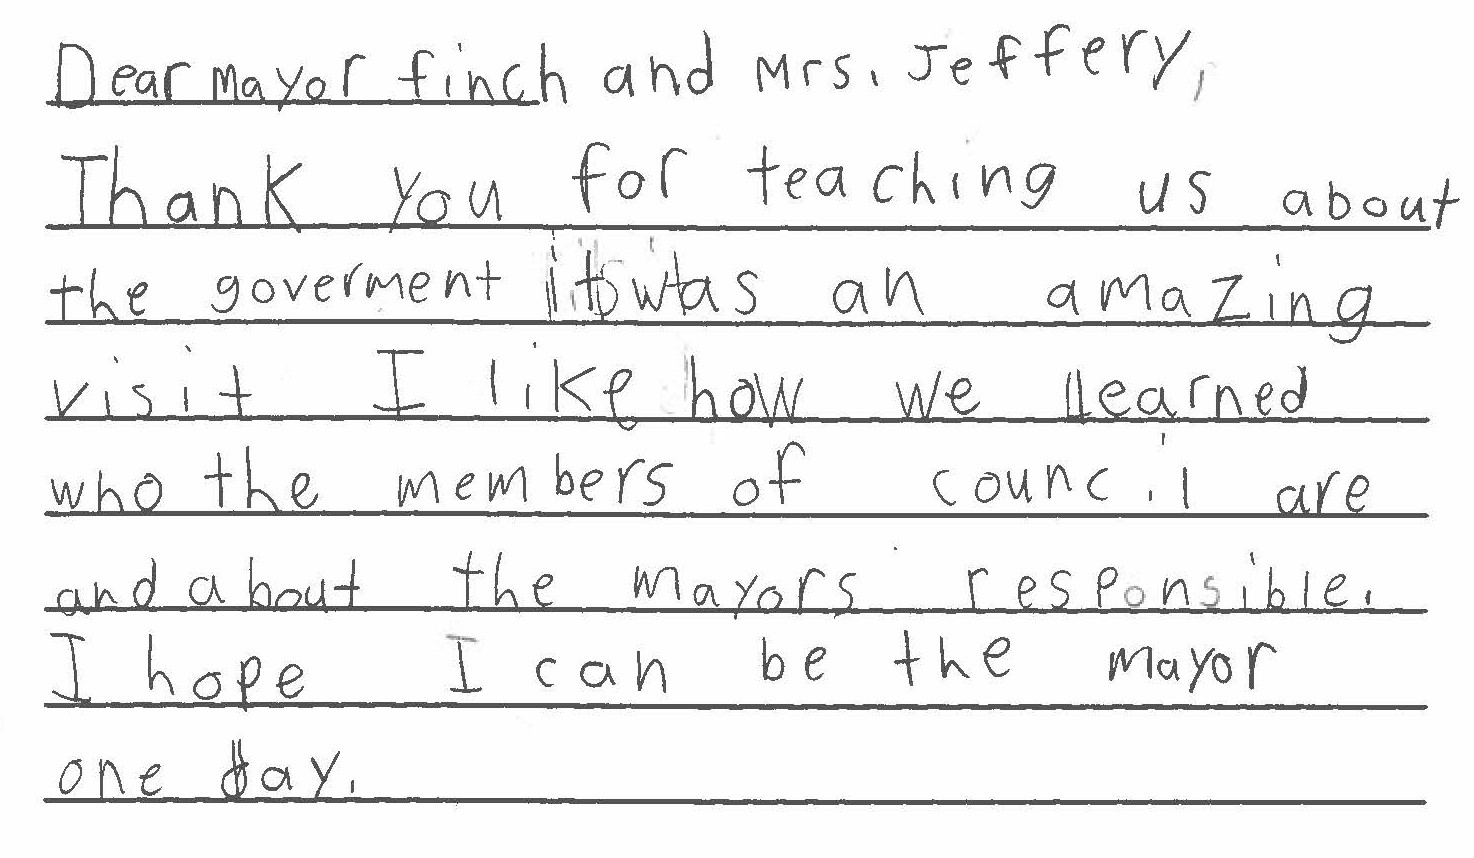 Dear Mayor finch and Mrs. Jeffery,
Thank you for teaching us about
the goverment it was an amazing
visit I like how we learned
who the members of council are
and about the mayors responsible.
I hope I can be the mayor
one day.